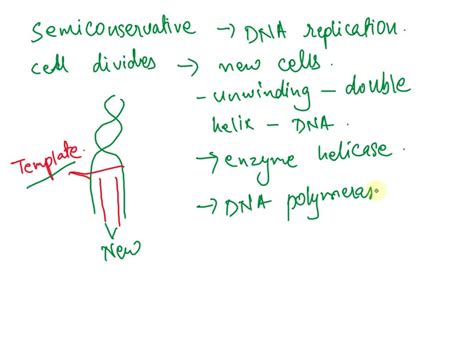 Semiconservative → DNA replication.
cell divides → new cells.
- unwinding - double
helix - DNA.
→ enzyme helicase.
→ DNA polymeras
Template
New